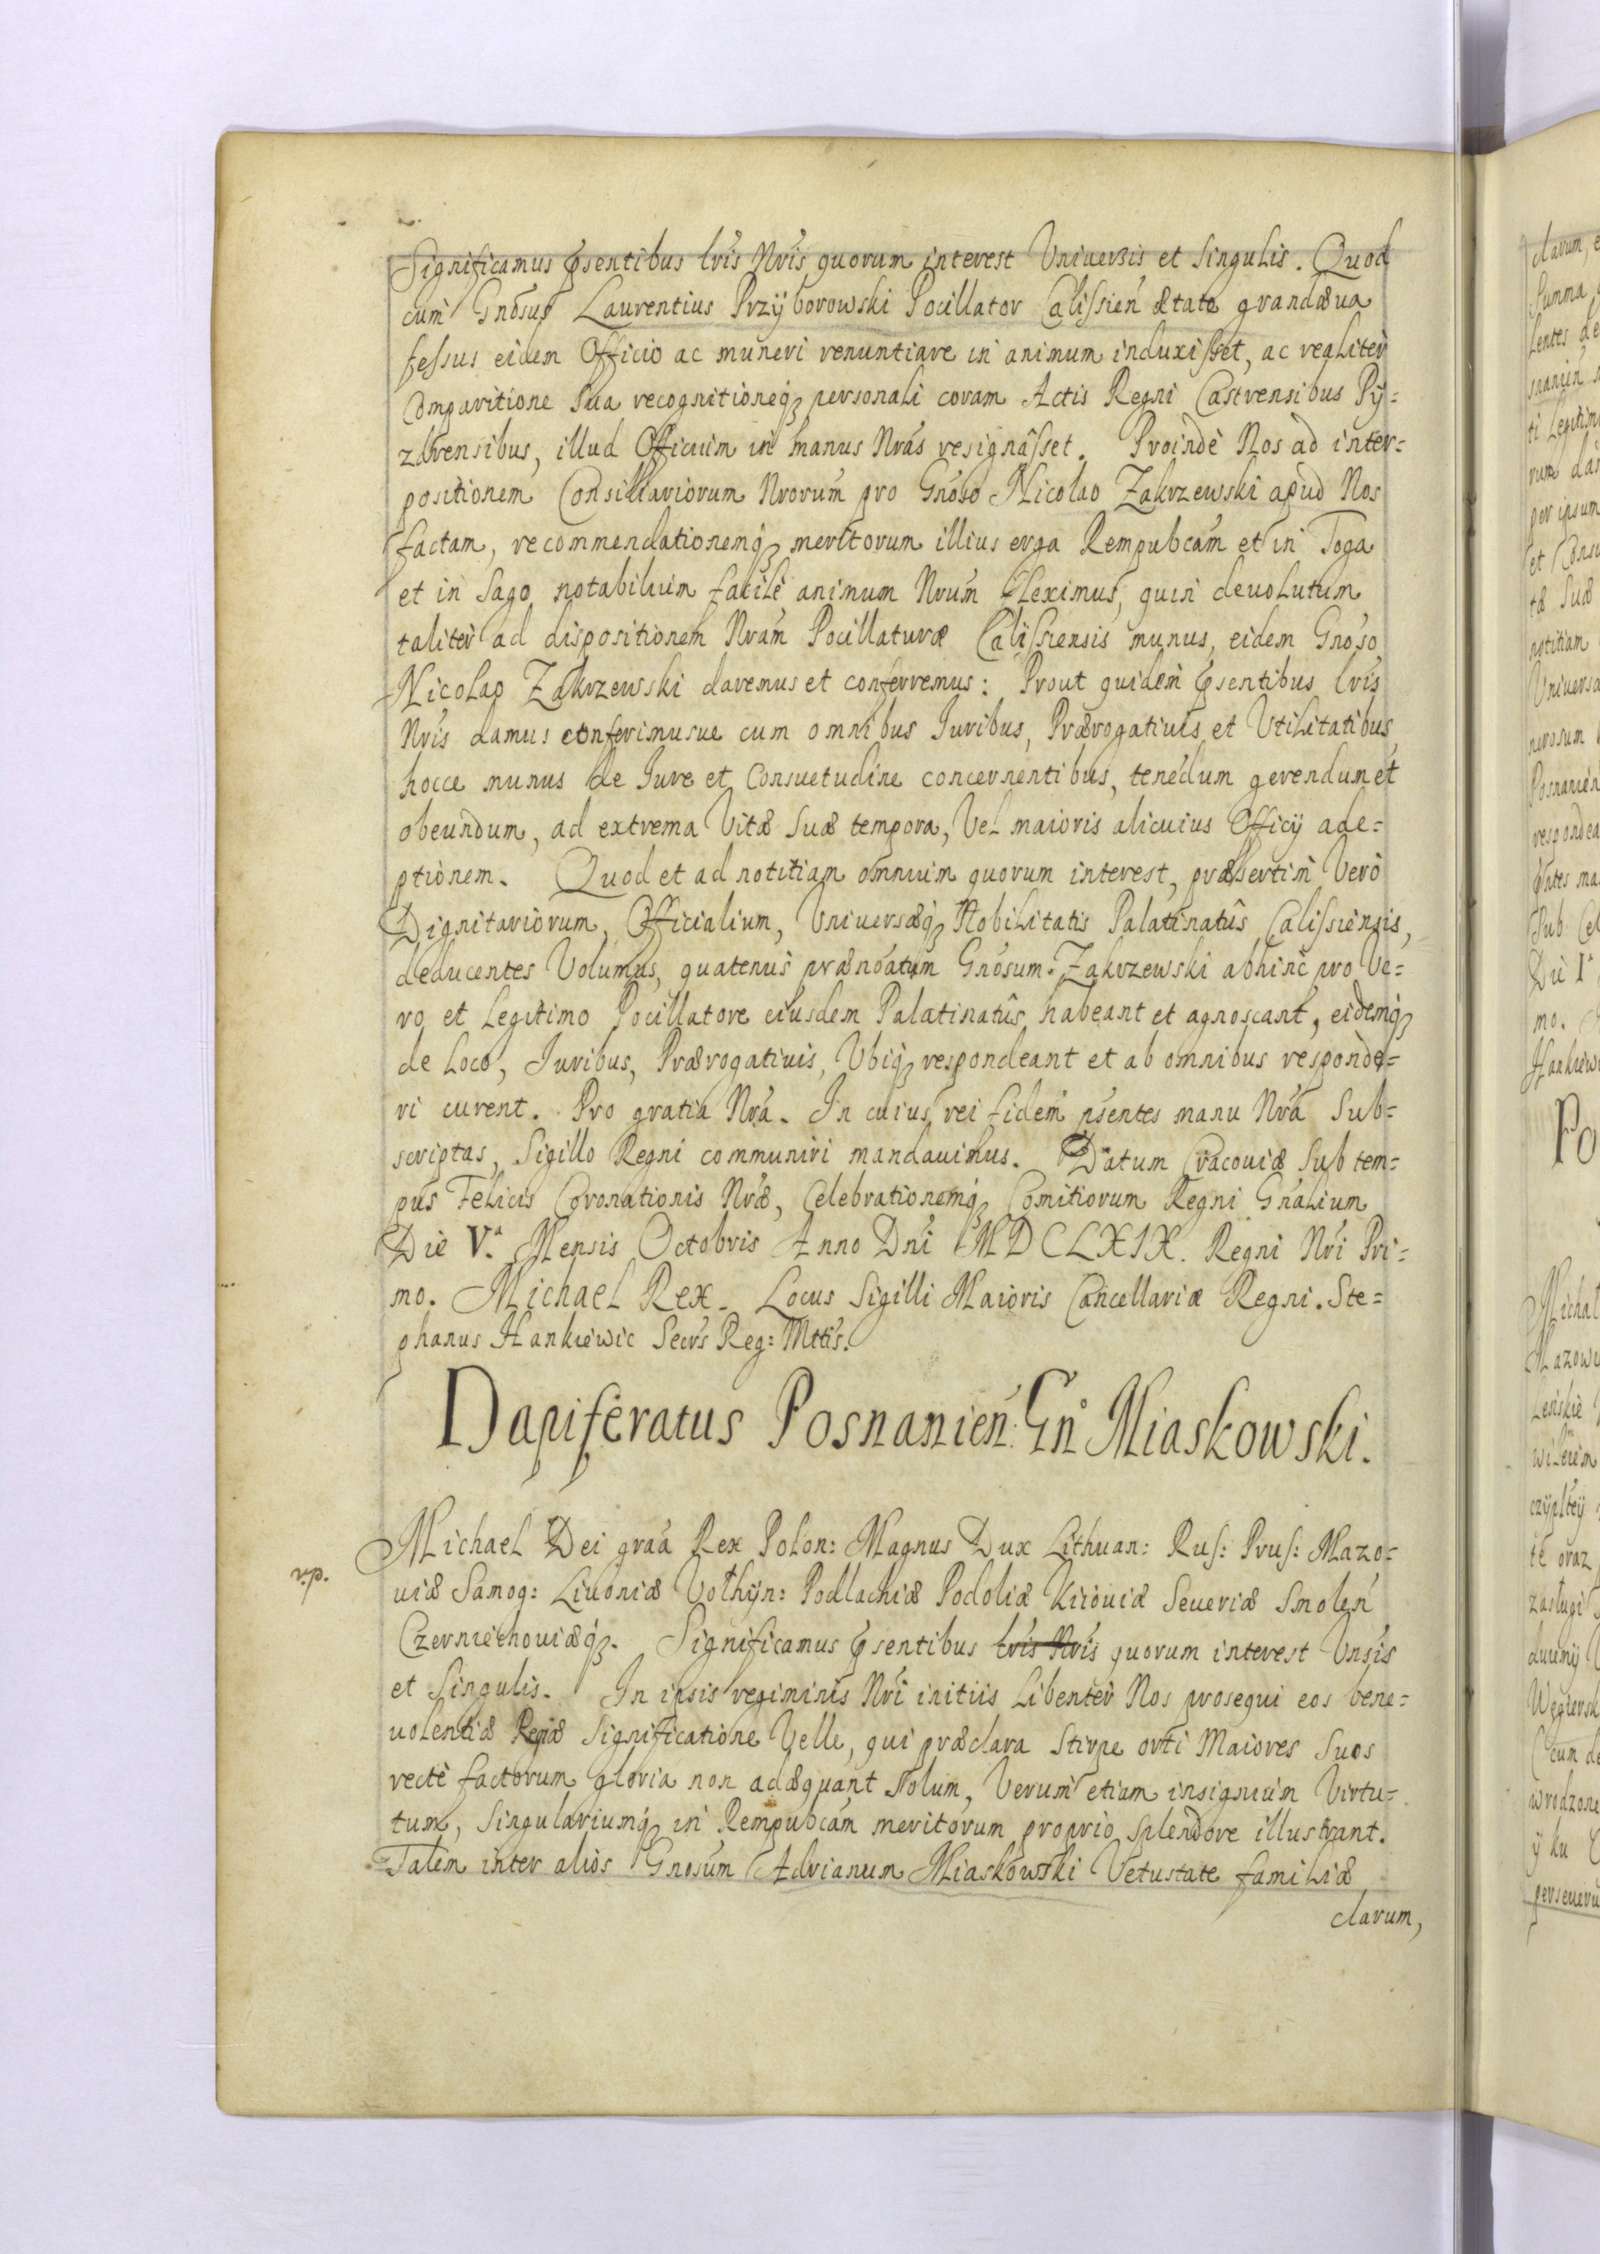 Significamus psentibus lris Nris quorum interest Universis et Singulis. Quod
cum Gnosus Laurentius Przÿborowski Pocillator Calissien ætate grandæva
fessus eidem Officio ac muneri renuntiare in animum induxisset, ac realiter
Comparitione sua recognitioneq personali coram Actis Regni Castrensibus Pÿ=
zdrensibus, illud Officium in manus Nras resignâsset. Proindè Nos ad inter=
positionem Consiliariorum Nrorum pro Gnoso Nicolao Zakrzewski apud Nos
factam, recommendationemq meritorum illius erga Rempubcam et in Toga
et in Sago notabilium facilè animum Nrum flexinus, quin devolutum
taliter ad dispositionem Nram Pocillaturæ Calissiensis munus, eidem Gnoso
Nicolao Zakrzewski daremus et conferremus: Prout quidem psentibus lris
Nris damus conferimusue cum omnibus Iuribus, Prærogativis et Vtilitatibus
hocce munus de Iure et Consuetudine concernentibus, tenedum gerendum et
obeundum, ad extrema Vitæ suæ tempora, Vel maioris alicuius Officÿ ade=
ptionem. Quod et ad notitiam omnium quorum interest, præsertim Verò
Dignitariorum, Officialium, Universæq Nobilitatis Palatinatûs Calissiensis,
deducentes Volumus, quatenus prænoatum Gnosum Zakrzewski abhinc pro Ve=
ro et Legitimo Pocillatore eiusdem Palatinatûs habeant et agnoscant, eidemq
de Loco, Iuribus, Prærogativis, Vbiq respondeant et ab omnibus responde=
ri curent. Pro gratia Nra. In cuius rei fidem psentes manu Nra Sub=
scriptas, Sigillo Regni communiri mandavimus. Datum Cracoviæ Sub tem=
pus Felicis Coronationis Nræ, Celebrationemq Comitiorum Regni Gnalium
Die V.a Mensis Octobris Anno Dni MDCLXIX. Regni Nri Pri=
mo. Michael Rex. Locus Sigilli Maioris Cancellariæ Regni. Ste=
phanus Hankiewic Secrs Reg: Mttis.
Dapiferatus Posnanien Gno Miaskowski.
Michael Dei graa Rex Polon: Magnus Dux Lithuan: Rus: Prus: Mazo=
viæ Samog: Livoniæ Volhÿn: Podlachiæ Podoliæ Kiioviæ Severiæ Smolen
Czerniechoviæq. Significamus psentibus lris Nris quorum interest Vnsis
et Singulis. In ipsis regiminis Nri initiis Libenter Nos prosequi eos bene=
volentiæ Regiæ significatione Velle, qui præclara Stirpe orti Maiores Suos
rectè factorum gloria non adæquant solum, Verum etiam insignium Virtu=
tum, Singulariumq in Rempubcam meritorum proprio splendore illustrant.
Talem inter alios Gnosum Adrianum Miaskowski Vetustate familiæ
clarum,